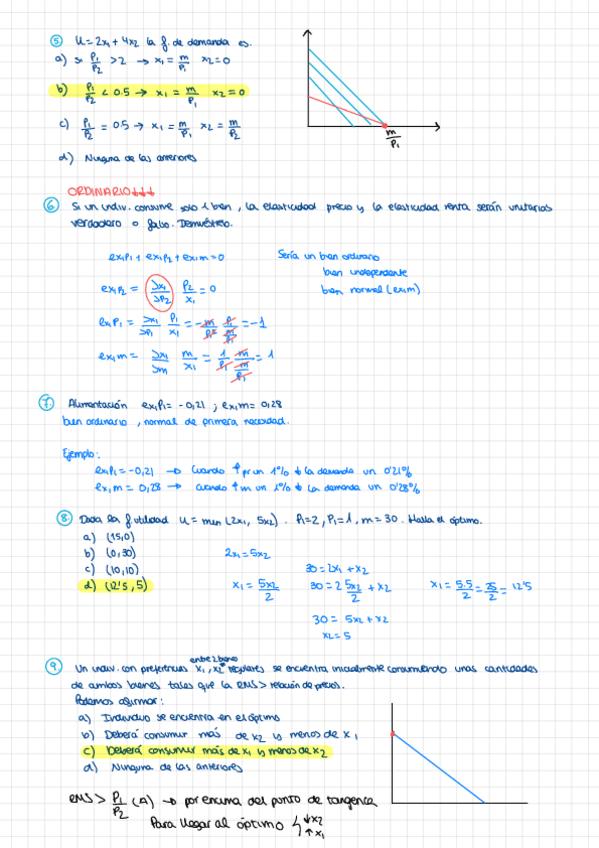 5 U = 2x1 + 4x2 la f. de demanda es.
a) si P1/P2 > 2 → x1 = m/P1 x2 = 0
b) P1/P2 < 0.5 → x1 = m/P1 x2 = 0
c) P1/P2 = 0.5 → x1 = m/P1 x2 = m/P2
d) Ninguna de las anteriores
m/P1
ORDINARIO↓↓↓
6 Si un indiv. consume solo 1 bien, la elasticidad precio y la elasticidad renta serán unitarias
verdadero o falso. Demuéstrelo.
ex1P1 + ex1P2 + ex1m = 0 Sería un bien ordinario
bien independiente
ex1P2 = ∂x1/∂P2 P2/x1 = 0 bien normal (ex1m)
ex1P1 = ∂x1/∂P1 P1/x1 = -m/P1² P1/(m/P1) = -1
ex1m = ∂x1/∂m m/x1 = 1/P1 m/(m/P1) = 1
7. Alimentación ex1P1 = -0,21 ; ex1m = 0,28
bien ordinario, normal de primera necesidad.
Ejemplo:
ex1P1 = -0,21 → Cuando ↑ pr un 1% ↓ la demanda un 0'21%
ex1m = 0,28 → cuando ↑ m un 1% ↓ la demanda un 0'28%
8 Dada la f utilidad U = min (2x1, 5x2). P1=2, P2=1, m = 30. Halla el óptimo.
a) (15,0)
b) (0,30) 2x1 = 5x2
c) (10,10) 30 = 2x1 + x2
d) (12'5, 5) x1 = 5x2/2 30 = 2 5x2/2 + x2 x1 = 5.5/2 = 25/2 = 12'5
30 = 5x2 + x2
x2 = 5
9 entre 2 bienes
Un indiv. con preferencias x1, x2 regulares se encuentra inicialmente consumiendo unas cantidades
de ambos bienes tales que la RMS > relación de precios.
Podemos afirmar:
a) Individuo se encuentra en el óptimo
b) Deberá consumir más de x2 y menos de x1
c) Deberá consumir más de x1 y menos de x2
d) Ninguna de las anteriores
RMS > P1/P2 (A) → por encima del punto de tangencia
Para llegar al óptimo ↓x2
↑x1